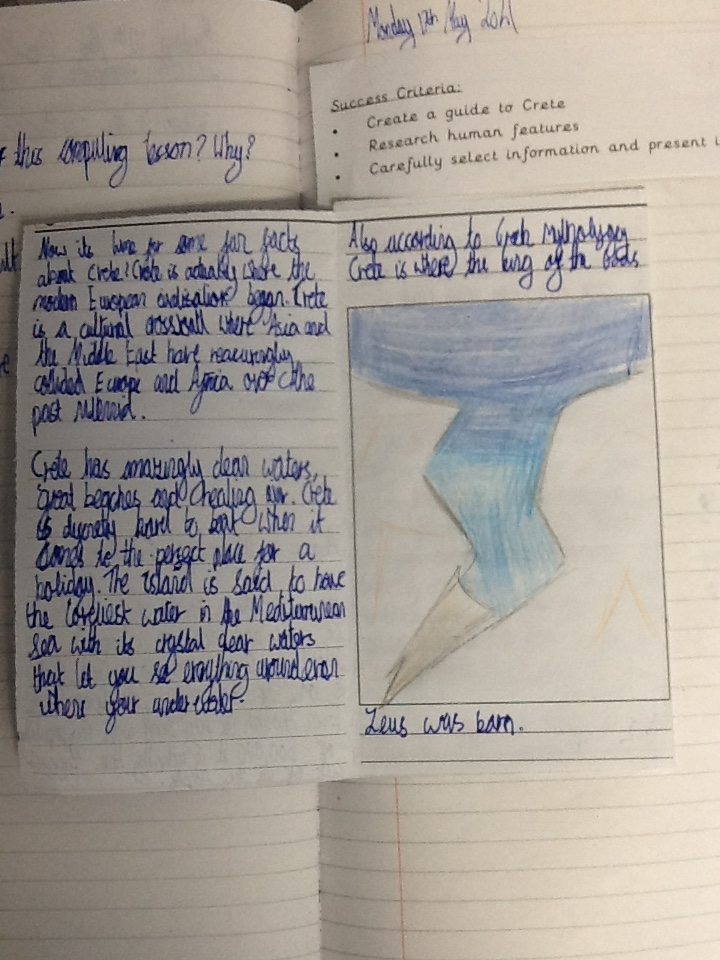 Monday 17th May 2021
Success Criteria:
• Create a guide to Crete
• Research human features
• Carefully select information and present i
this computing lesson? Why?
Now its time for some fun facts
about Crete! Crete is actually where the
modern European civilisation began. Crete
is a cultural where Asia and
the Middle East have reacuringly
colided Europe and Africa over the
past
Crete has amazingly clear waters,
great beaches and healing air. Crete
is hard to beat when it
comes to the perfect place for a
holiday. The island is said to have
the loveliest water in the Mediterranean
Sea with its crystal clear waters
that let you se around even
where your underwater.
Also according to Greek
Crete is where the king of the Gods
Zeus was born.